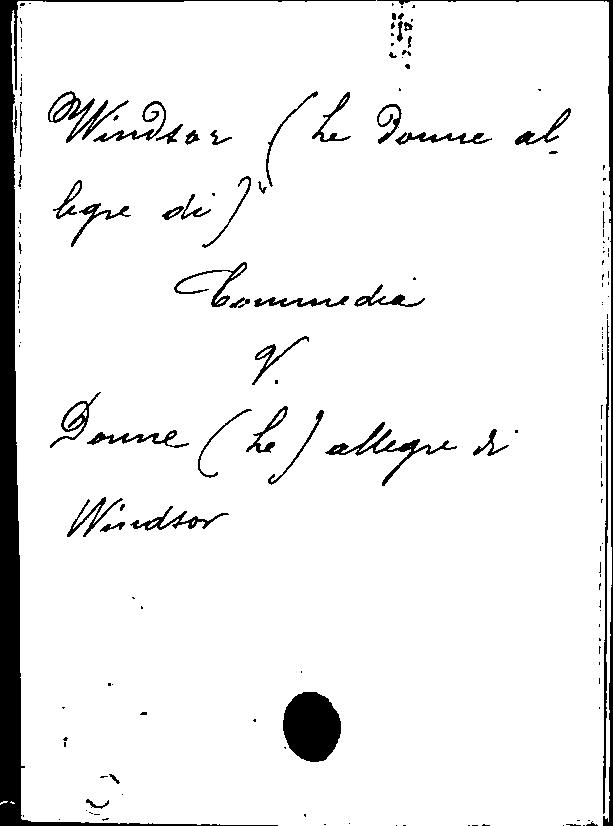 Windsor (Le Donne al-
legre di)"
Commedia
V.
Donne (Le) allegre di
Windsor